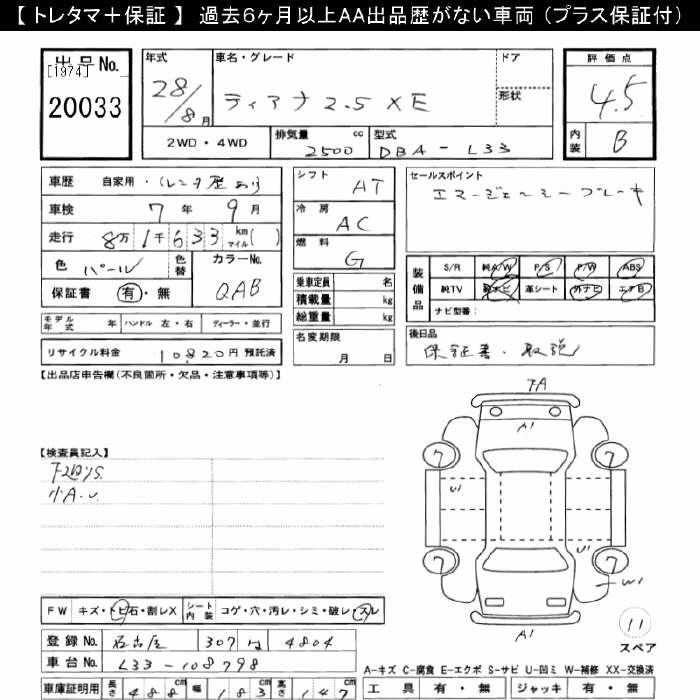 【 トレタマ＋保証 】 過去6ヶ月以上AA出品歴がない車両（プラス保証付）
出品No.
[1974]
20033
年式
28/8月
車名・グレード
ティアナ 2.5 XE
ドア
形状
評価点
4.5
内装 B
2WD・4WD
排気量 2500 cc
型式 DBA-L33
車歴 自家用・(レンタ歴あり)
車検 7年 9月
走行 8万1千633 km マイル( )
色 パール
色替
カラーNo. QAB
保証書 有・無
モデル年式 年 ハンドル 左・右 ディーラー・並行
リサイクル料金 10,820円 預託済
シフト AT
冷房 AC
燃料 G
乗車定員 名
積載量 kg
総重量 kg
名変期限 月 日
セールスポイント
エマージェンシーブレーキ
装備品
S/R 純A/W P/S P/W ABS
純TV 純ナビ 革シート 外ナビ エアB
ナビ型番：
後日品
保証書・取説
【出品店申告欄(不良箇所・欠品・注意事項等)】
【検査員記入】
下回りS
小A・U
FA
A1
7
7
U1
A1
7
7
W1
11
スペア
FW キズ・トビ石・割レX
シート内装 コゲ・穴・汚レ・シミ・破レ・スレ
登録No. 名古屋 307 は 4804
車台No. L33-108798
車庫証明用 長さ 488 幅 183 高さ 147
A-キズ C-腐食 E-エクボ S-サビ U-凹ミ W-補修 XX-交換済
工具 有・無 ジャッキ 有・無